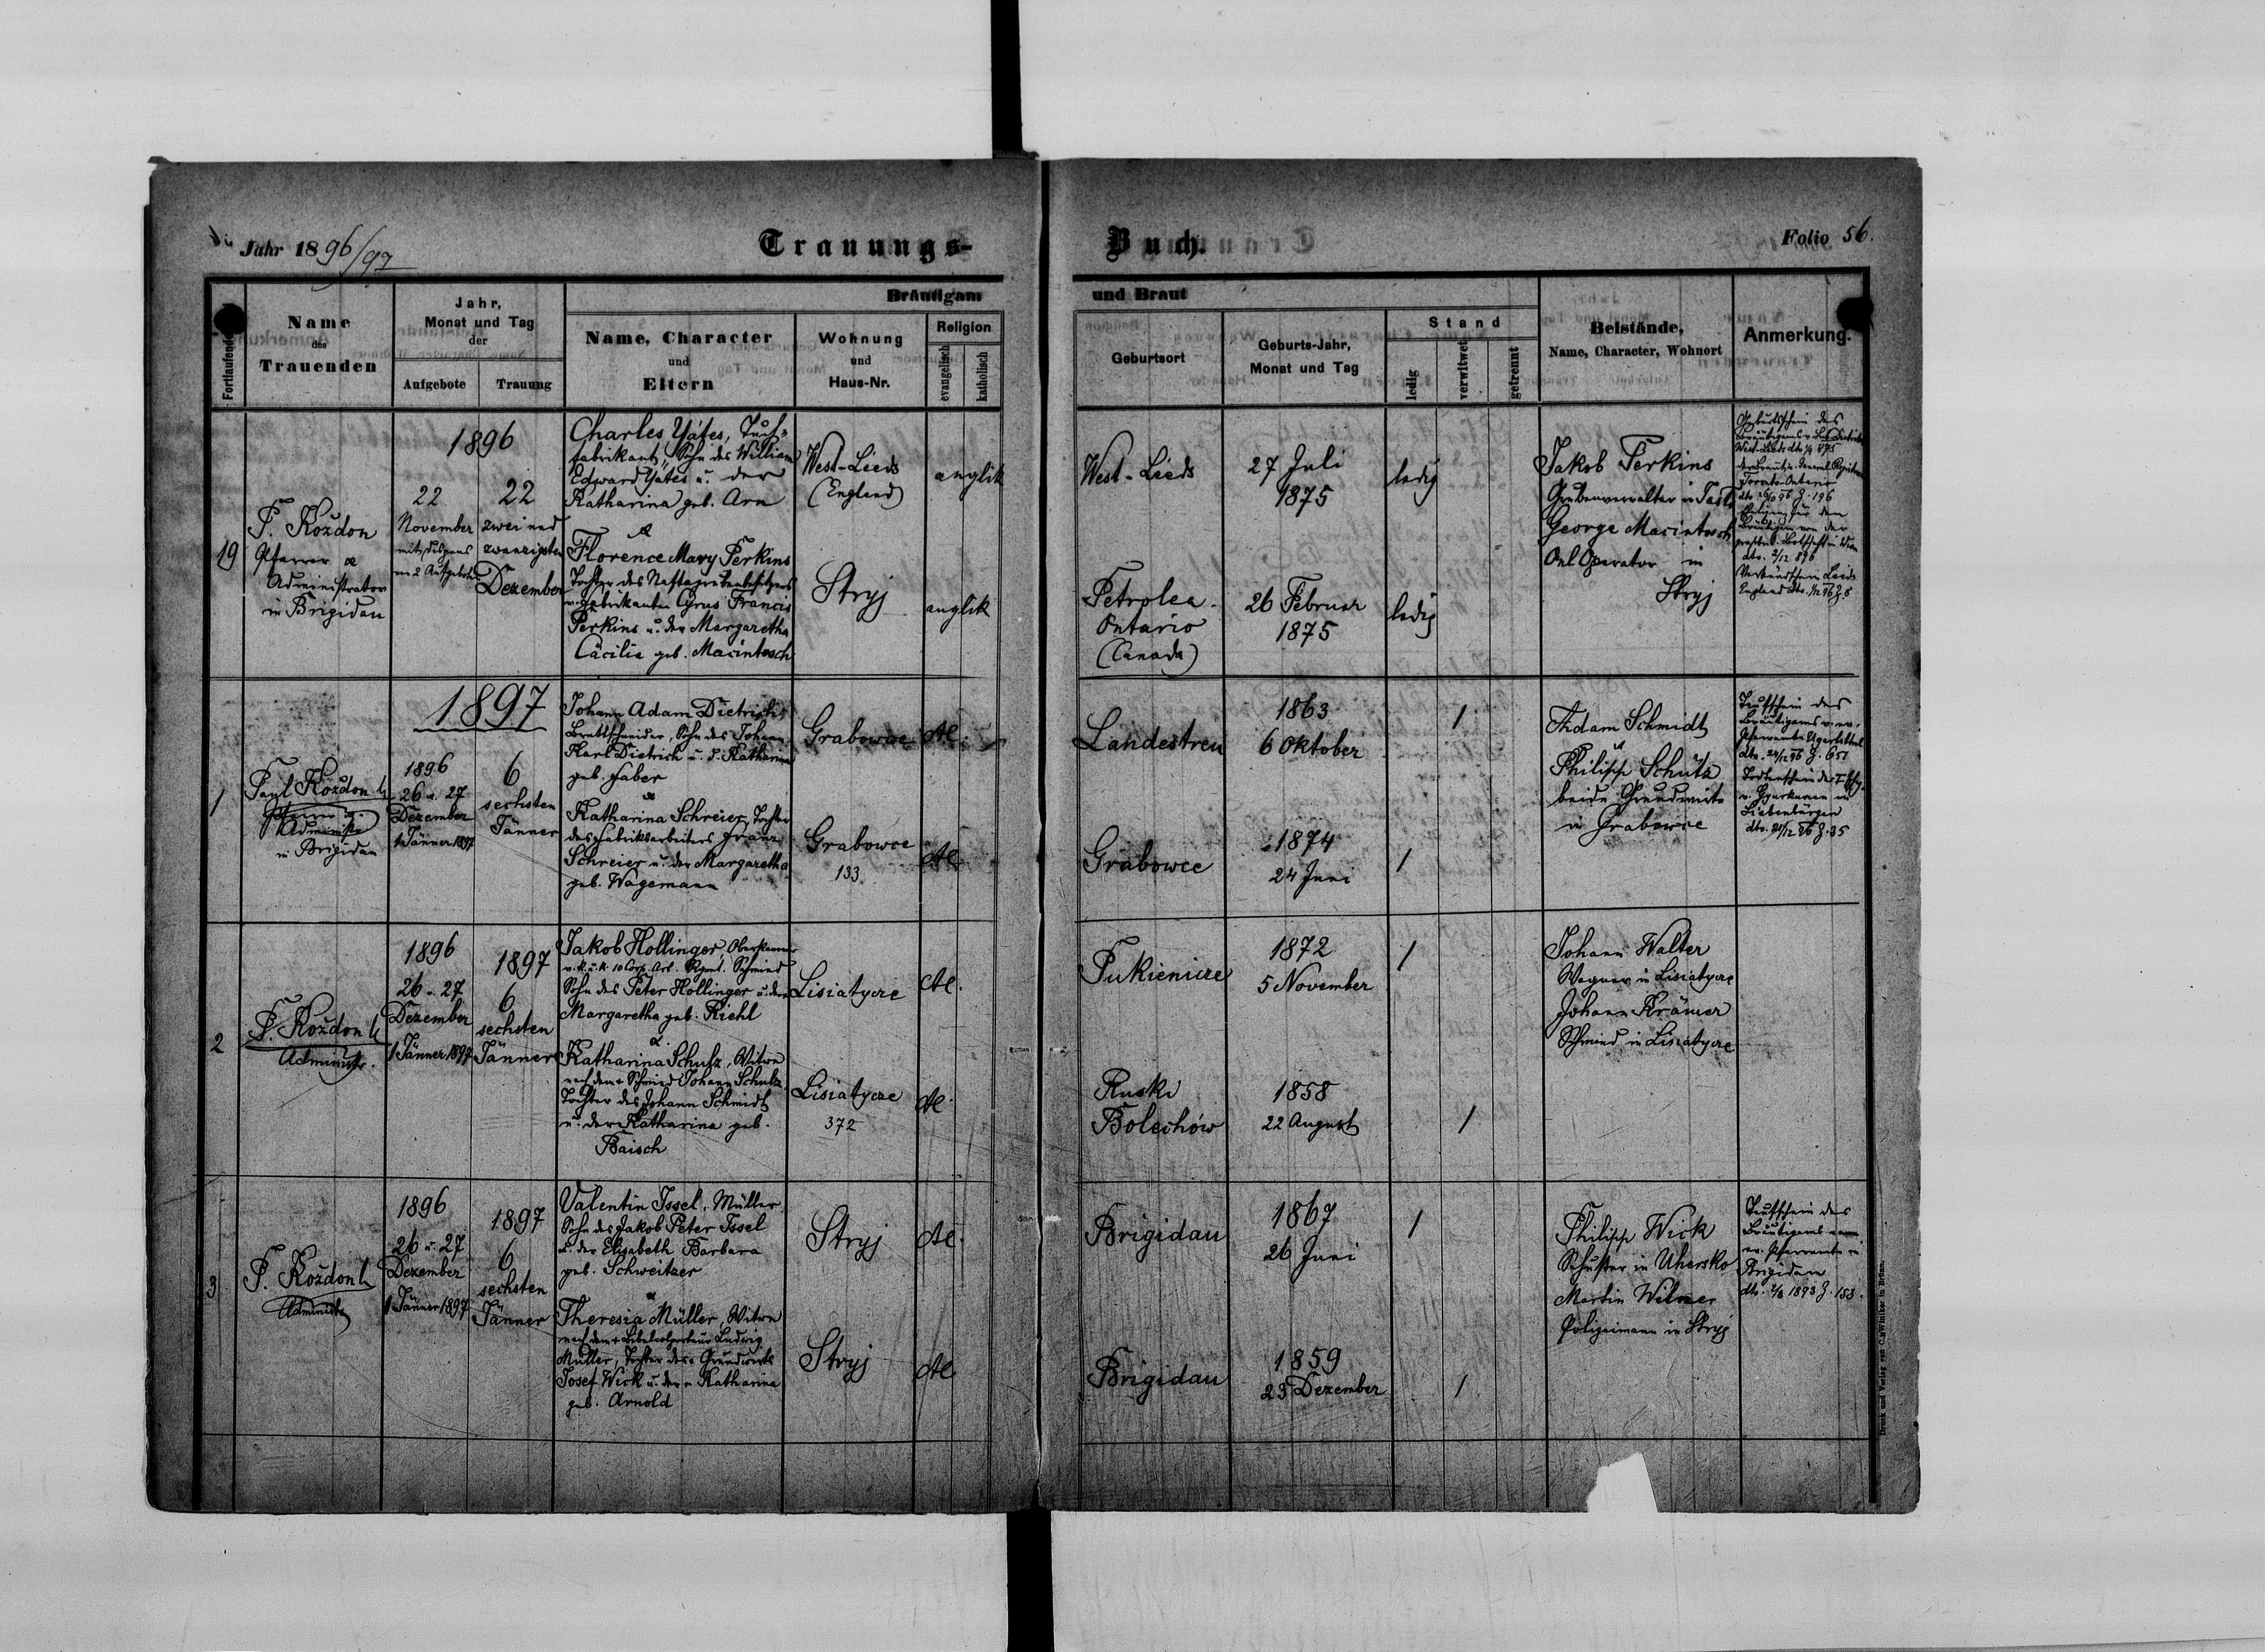 Jahr 1896/97
Trauungs-
Buch.
Folio 56.
Fortlaufende
Name
des
Trauenden
Jahr,
Monat und Tag
der
Aufgebote
Trauung
Bräutigam
und Braut
Name, Character
und
Eltern
Wohnung
und
Haus-Nr.
Religion
evangelisch
katholisch
Geburtsort
Geburts-Jahr,
Monat und Tag
Stand
ledig
verwitwet
getrennt
Beistände,
Name, Character, Wohnort
Anmerkung.
19
P. Kożdon
Pfarrer &
Administrator
in Brigidau
1896
22
November
mit Dispens
von 2 Aufgeboten
22
zwei und
zwanzigsten
Dezember
Charles Yates, Tuch-
fabrikant, Sohn des William
Edward Yates u. der
Katharina geb. Arn
&
Florence Mary Perkins
Tochter des Naftagrubenbesitzers
u. Fabrikanten Cyrus Francis
Perkins u. der Margaretha
Cäcilia geb. Macintosch
West-Lieds
(England)
Stryj
anglik
anglik
West-Lieds
Petrolea
Ontario
(Canada)
27 Juli
1875
26 Februar
1875
ledig
ledig
Jakob Perkins
Grubenverwalter in
George Macintosch
Oel Operator in
Stryj
Geburtsschein des
Bräutigams
West-Leeds
Toronto Ontario
Bräutigam von der
England
1
Paul Kożdon
Pfarrer u.
Administr
in Brigidau
1897
1896
26 u. 27
Dezember
1 Jänner 1897
6
sechsten
Jänner
Johann Adam Dietrich,
Brettschneider, Sohn des Johann
Karl Dietrich u. d. Katharina
geb. Faber
&
Katharina Schreier, Tochter
des Fabriksarbeiters Franz
Schreier u. der Margaretha
geb. Wagemann
Grabowce
Grabowce
133
AC.
AC.
Landestreu
Grabowce
1863
6 Oktober
1874
24 Juni
/
/
Adam Schmidt
u
Philipp Schütz
beide Grundwirte
in Grabowce
Taufschein des
Bräutigams v. ev.
Pfarramte Ugartsthal
dto. 24/12 96 Z. 651
Siebenbürgen
2
P. Kożdon
Administr.
1896
26 u. 27
Dezember
1 Jänner 1897
1897
6
sechsten
Jänner
Jakob Hollinger,
v. k. u. k. 10 Corps Art. Rgmt. Schmied
Sohn des Peter Hollinger u. der
Margaretha geb. Riehl
&
Katharina Schulz, Witwe
nach dem + Schmied Johann Schulz,
Tochter des Johann Schmidt
u. der Katharina geb.
Baisch
Lisiatycze
Lisiatycze
372
AC.
AC.
Pukienicze
Ruski
Bolechów
1872
5 November
1858
22 August
/
/
Johann Walter
Wagner in Lisiatycze
Johann Krämer
Schmied in Lisiatycze
3
P. Kożdon
Administr
1896
26 u. 27
Dezember
1 Jänner 1897
1897
6
sechsten
Jänner
Valentin Issel, Müller
Sohn des Jakob Peter Issel
u. der Elisabeth Barbara
geb. Schweitzer
&
Theresia Müller, Witwe
nach dem + Bibelcolporteur Ludwig
Müller, Tochter des Grundwirts
Josef Wick u. der Katharina
geb. Arnold
Stryj
Stryj
AC.
AC.
Brigidau
Brigidau
1867
26 Juni
1859
23 Dezember
/
/
Philipp Wick
Schuster in Uhersko
Martin
Polizeimann in Stryj
Taufschein des
Bräutigams vom
ev. Pfarramte in
Brigidau
1893 Z. 153.
Druck und Verlag von C. Winiker in Brünn.